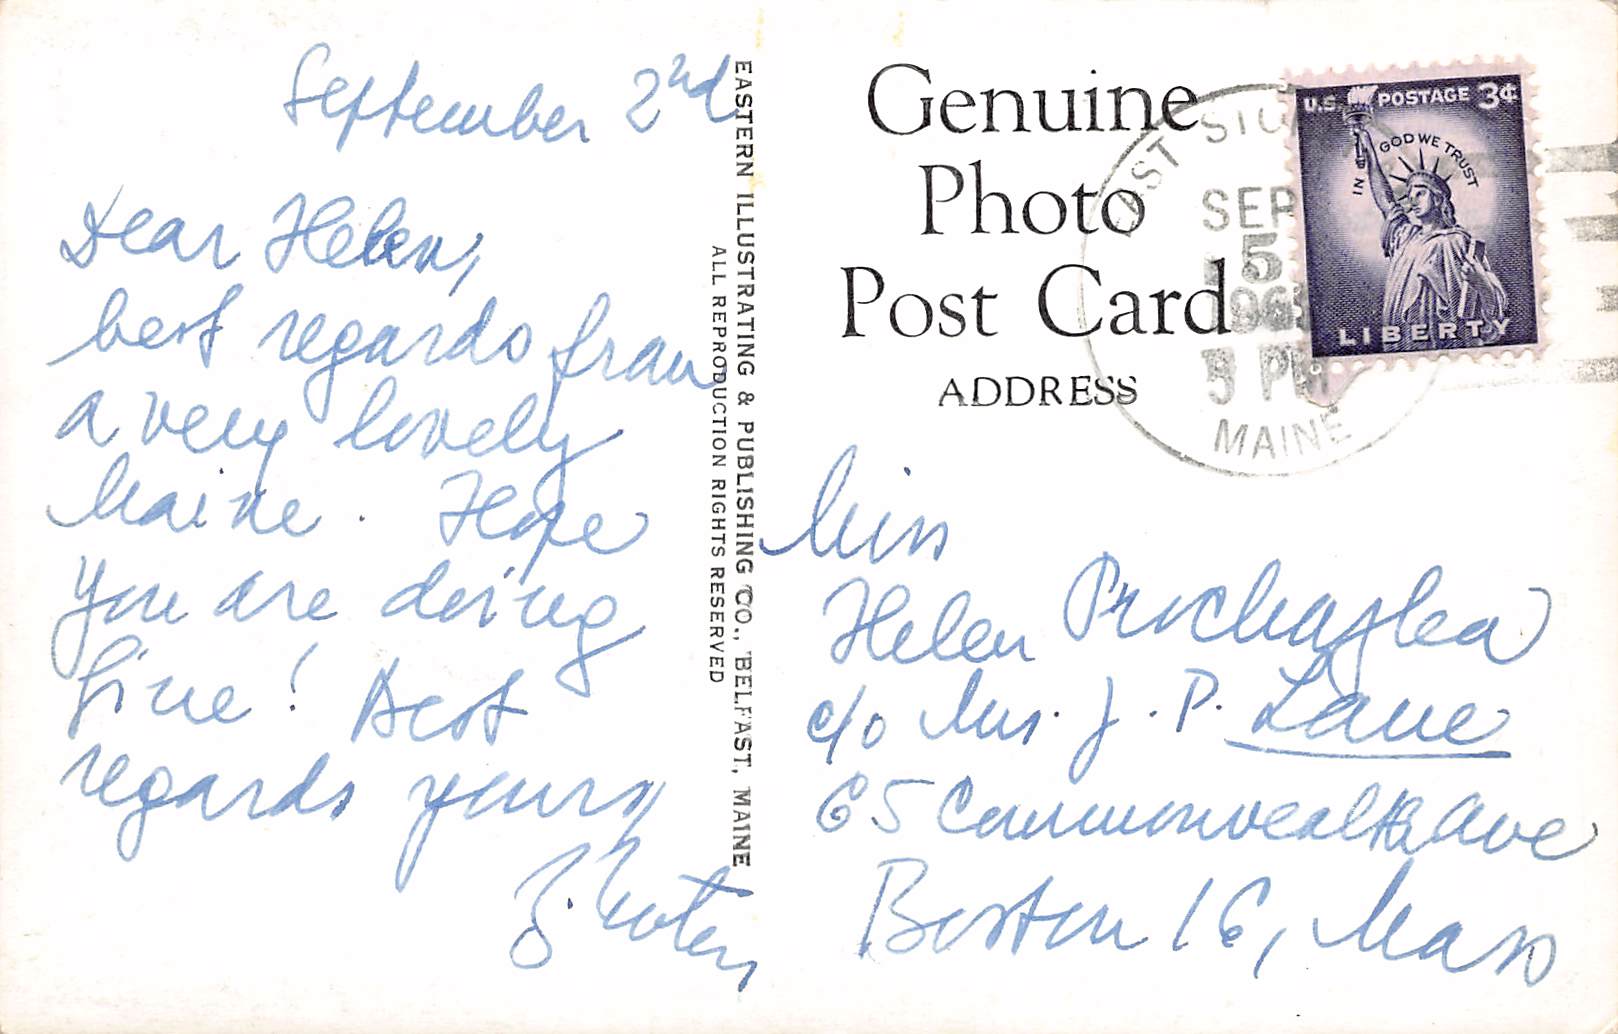 September 2nd
Dear Helen,
best regards from
a very lovely
Maine. Hope
you are doing
fine! Best
regards yours
EASTERN ILLUSTRATING & PUBLISHING CO., BELFAST, MAINE
ALL REPRODUCTION RIGHTS RESERVED
Genuine
Photo
Post Card
ADDRESS
SEP
5
PM
MAINE
U.S. POSTAGE 3¢
IN GOD WE TRUST
LIBERTY
Miss
Helen
c/o Mrs. J. P. Lane
65 Commonwealth Ave
Boston 16, Mass